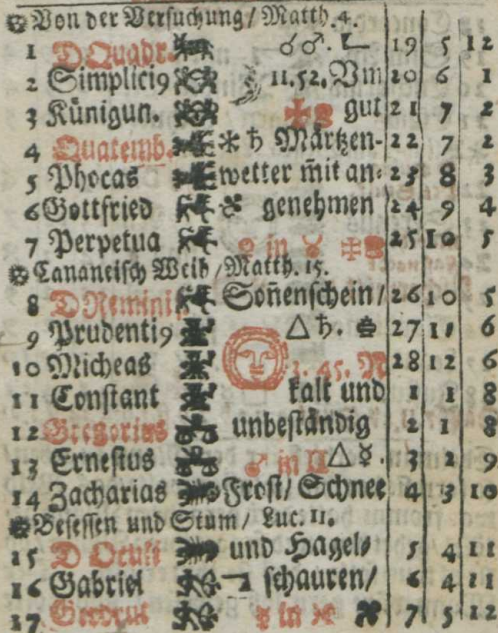 Von der Versuchung / Matth. 4.
1 D Quadr. ☌ ♂. 19 5 12
2 Simplici9 11.52. Vm 20 6 1
3 Künigun. gut 21 7 2
4 Quatemb. ⚹ ♄ Märtzen- 22 7 2
5 Phocas wetter m̄it an- 23 8 3
6 Gottfried genehmen 24 9 4
7 Perpetua ♀ in ♉ 25 10 5
Cananeisch Weib / Matth. 15.
8 D Remini. Son̄enschein / 26 10 5
9 Prudenti9 △ ♄. 27 11 6
10 Micheas 3. 45. N 28 12 6
11 Constant kalt und 1 1 8
12 Gregorius unbeständig 2 1 8
13 Ernestus ♂ in ♊ △ ☿. 3 2 9
14 Zacharias Frost / Schnee 4 3 10
Besessen und Stum / Luc. 11.
15 D Oculi und Hagel- 5 4 11
16 Gabriel schauren / 6 4 11
17 Gerdrut ☿ in ♓ 7 5 12